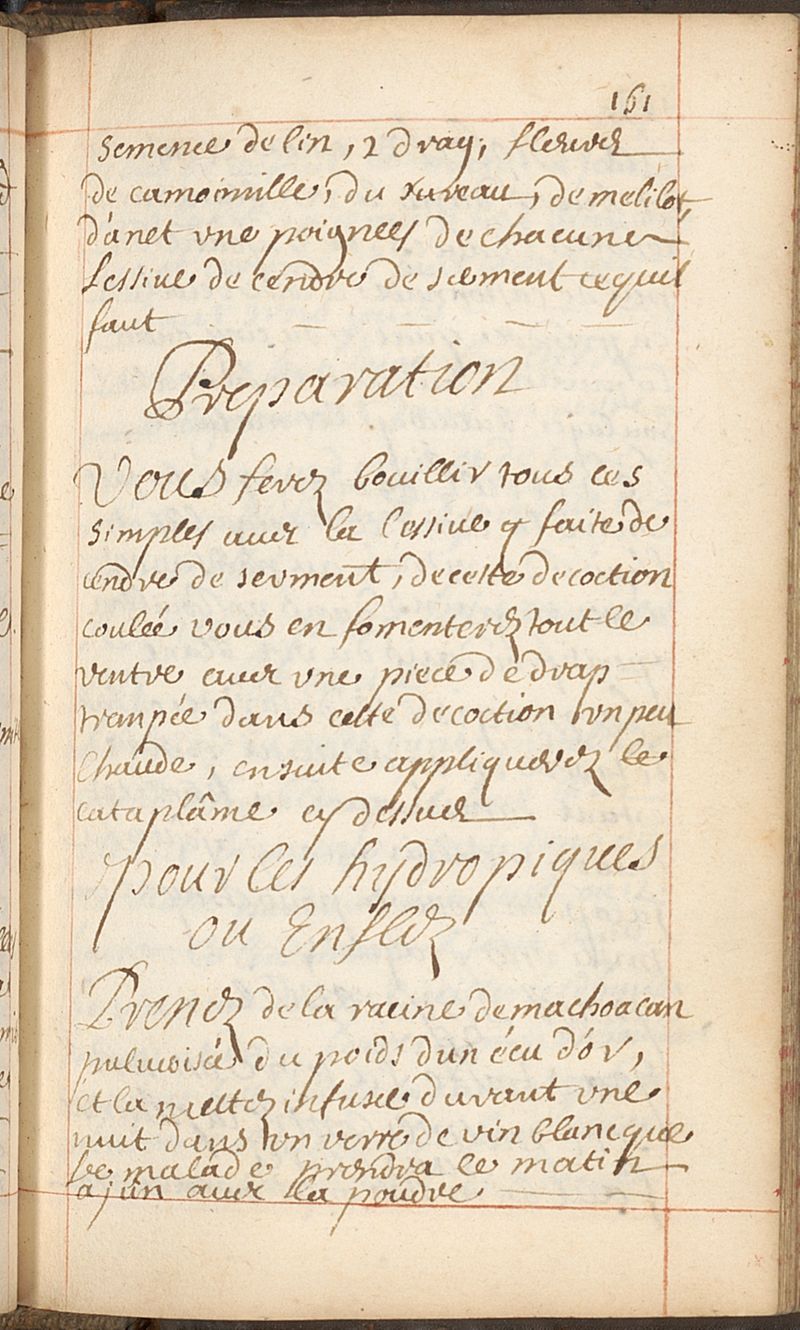 161
Semence de lin, 2 drag; fleurs
de camomille, du sureau, de melilot,
d'anet une poignées de chacune
Lessive de cendre de serment ce quil
faut
Preparation
Vous ferez bouillir tous ces
simples avec la lessive faite de
cendre de serment, de cette decoction
coulée vous en fomenterez tout le
ventre avec une piece de drap
trempée dans cette decoction un peu
chaude, ensuite appliquerez le
cataplâme cy dessus
pour les hydropiques
ou Enflez
Prenez de la racine de machoacan
pulverisée du poids d'un écu d'or,
et la mettez infuser durant une
nuit dans un verre de vin blanc que
le malade prendra le matin
a jun avec la poudre